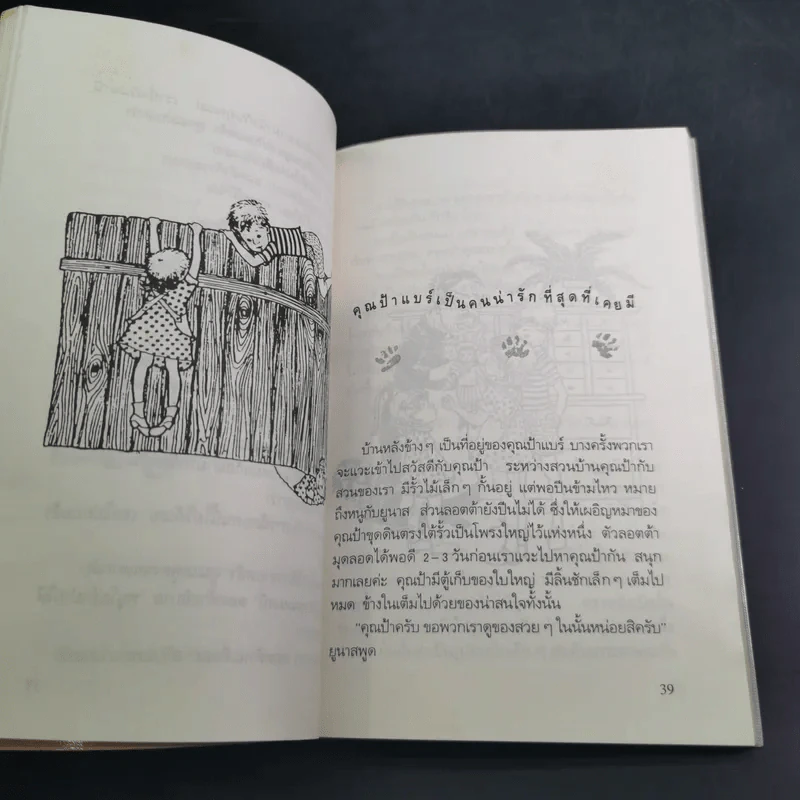 คุณป้าแบร์เป็นคนน่ารักที่สุดที่เคยมี
บ้านหลังข้างๆ เป็นที่อยู่ของคุณป้าแบร์ บางครั้งพวกเรา
จะแวะเข้าไปสวัสดีกับคุณป้า ระหว่างสวนบ้านคุณป้ากับ
สวนของเรา มีรั้วไม้เล็กๆ กั้นอยู่ แต่พอปีนข้ามไหว หมาย
ถึงหนูกับยูนาส ส่วนลอตต้ายังปีนไม่ได้ ซึ่งให้เผอิญหมาของ
คุณป้าขุดดินตรงใต้รั้วเป็นโพรงใหญ่ไว้แห่งหนึ่ง ตัวลอตต้า
มุดลอดได้พอดี 2–3 วันก่อนเราแวะไปหาคุณป้ากัน สนุก
มากเลยค่ะ คุณป้ามีตู้เก็บของใบใหญ่ มีลิ้นชักเล็กๆ เต็มไป
หมด ข้างในเต็มไปด้วยของน่าสนใจทั้งนั้น
"คุณป้าครับ ขอพวกเราดูของสวยๆ ในนั้นหน่อยสิครับ"
ยูนาสพูด
39